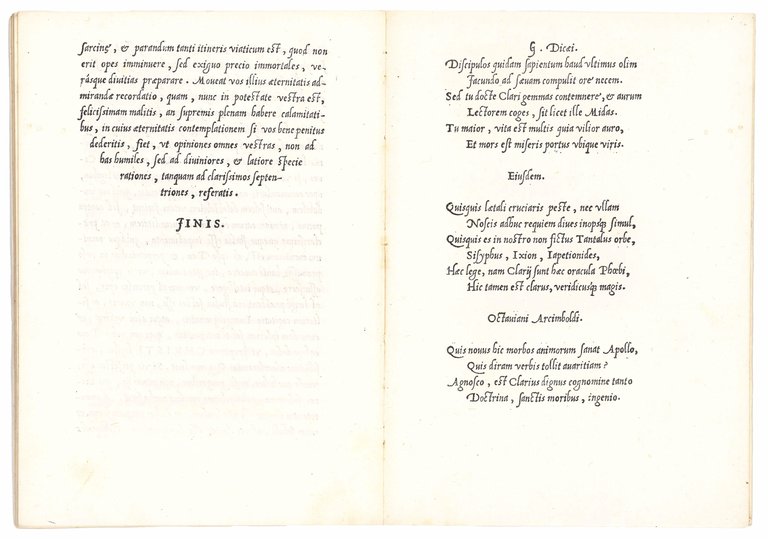 sarcinę, & parandum tanti itineris viaticum est, quod non
erit opes imminuere, sed exiguo precio immortales, ve-
rásque diuitias præparare. Moueat vos illius æternitatis ad-
mirandæ recordatio, quam, nunc in potestate vestra est,
felicissimam malitis, an supremis plenam habere calamitati-
bus, in cuius æternitatis contemplationem si vos bene penitus
dederitis, fiet, vt opiniones omnes vestras, non ad
has humiles, sed ad diuiniores, & latiore specie
rationes, tanquam ad clarissimos septen-
triones, referatis.
FINIS.
G. Dicæi.
Discipulos quidam sapientum haud vltimus olim
Facundo ad sæuam compulit ore necem.
Sed tu docte Clari gemmas contemnere, & aurum
Lectorem coges, sit licet ille Midas.
Tu maior, vita est multis quia vilior auro,
Et mors est miseris portus vbique viris.
Eiusdem.
Quisquis lætali cruciaris peste, nec vllam
Noscis adhuc requiem diues inopsq; simul,
Quisquis es in nostro non fictus Tantalus orbe,
Sisyphus, Ixion, Iapetionides,
Hæc lege, nam Clarij sunt hæc oracula Phœbi,
Hic tamen est clarus, veridicusq; magis.
Octauiani Arcimboldi.
Quis nouus hic morbos animorum sanat Apollo,
Quis diram verbis tollit auaritiam?
Agnosco, est Clarius dignus cognomine tanto
Doctrina, sanctis moribus, ingenio.